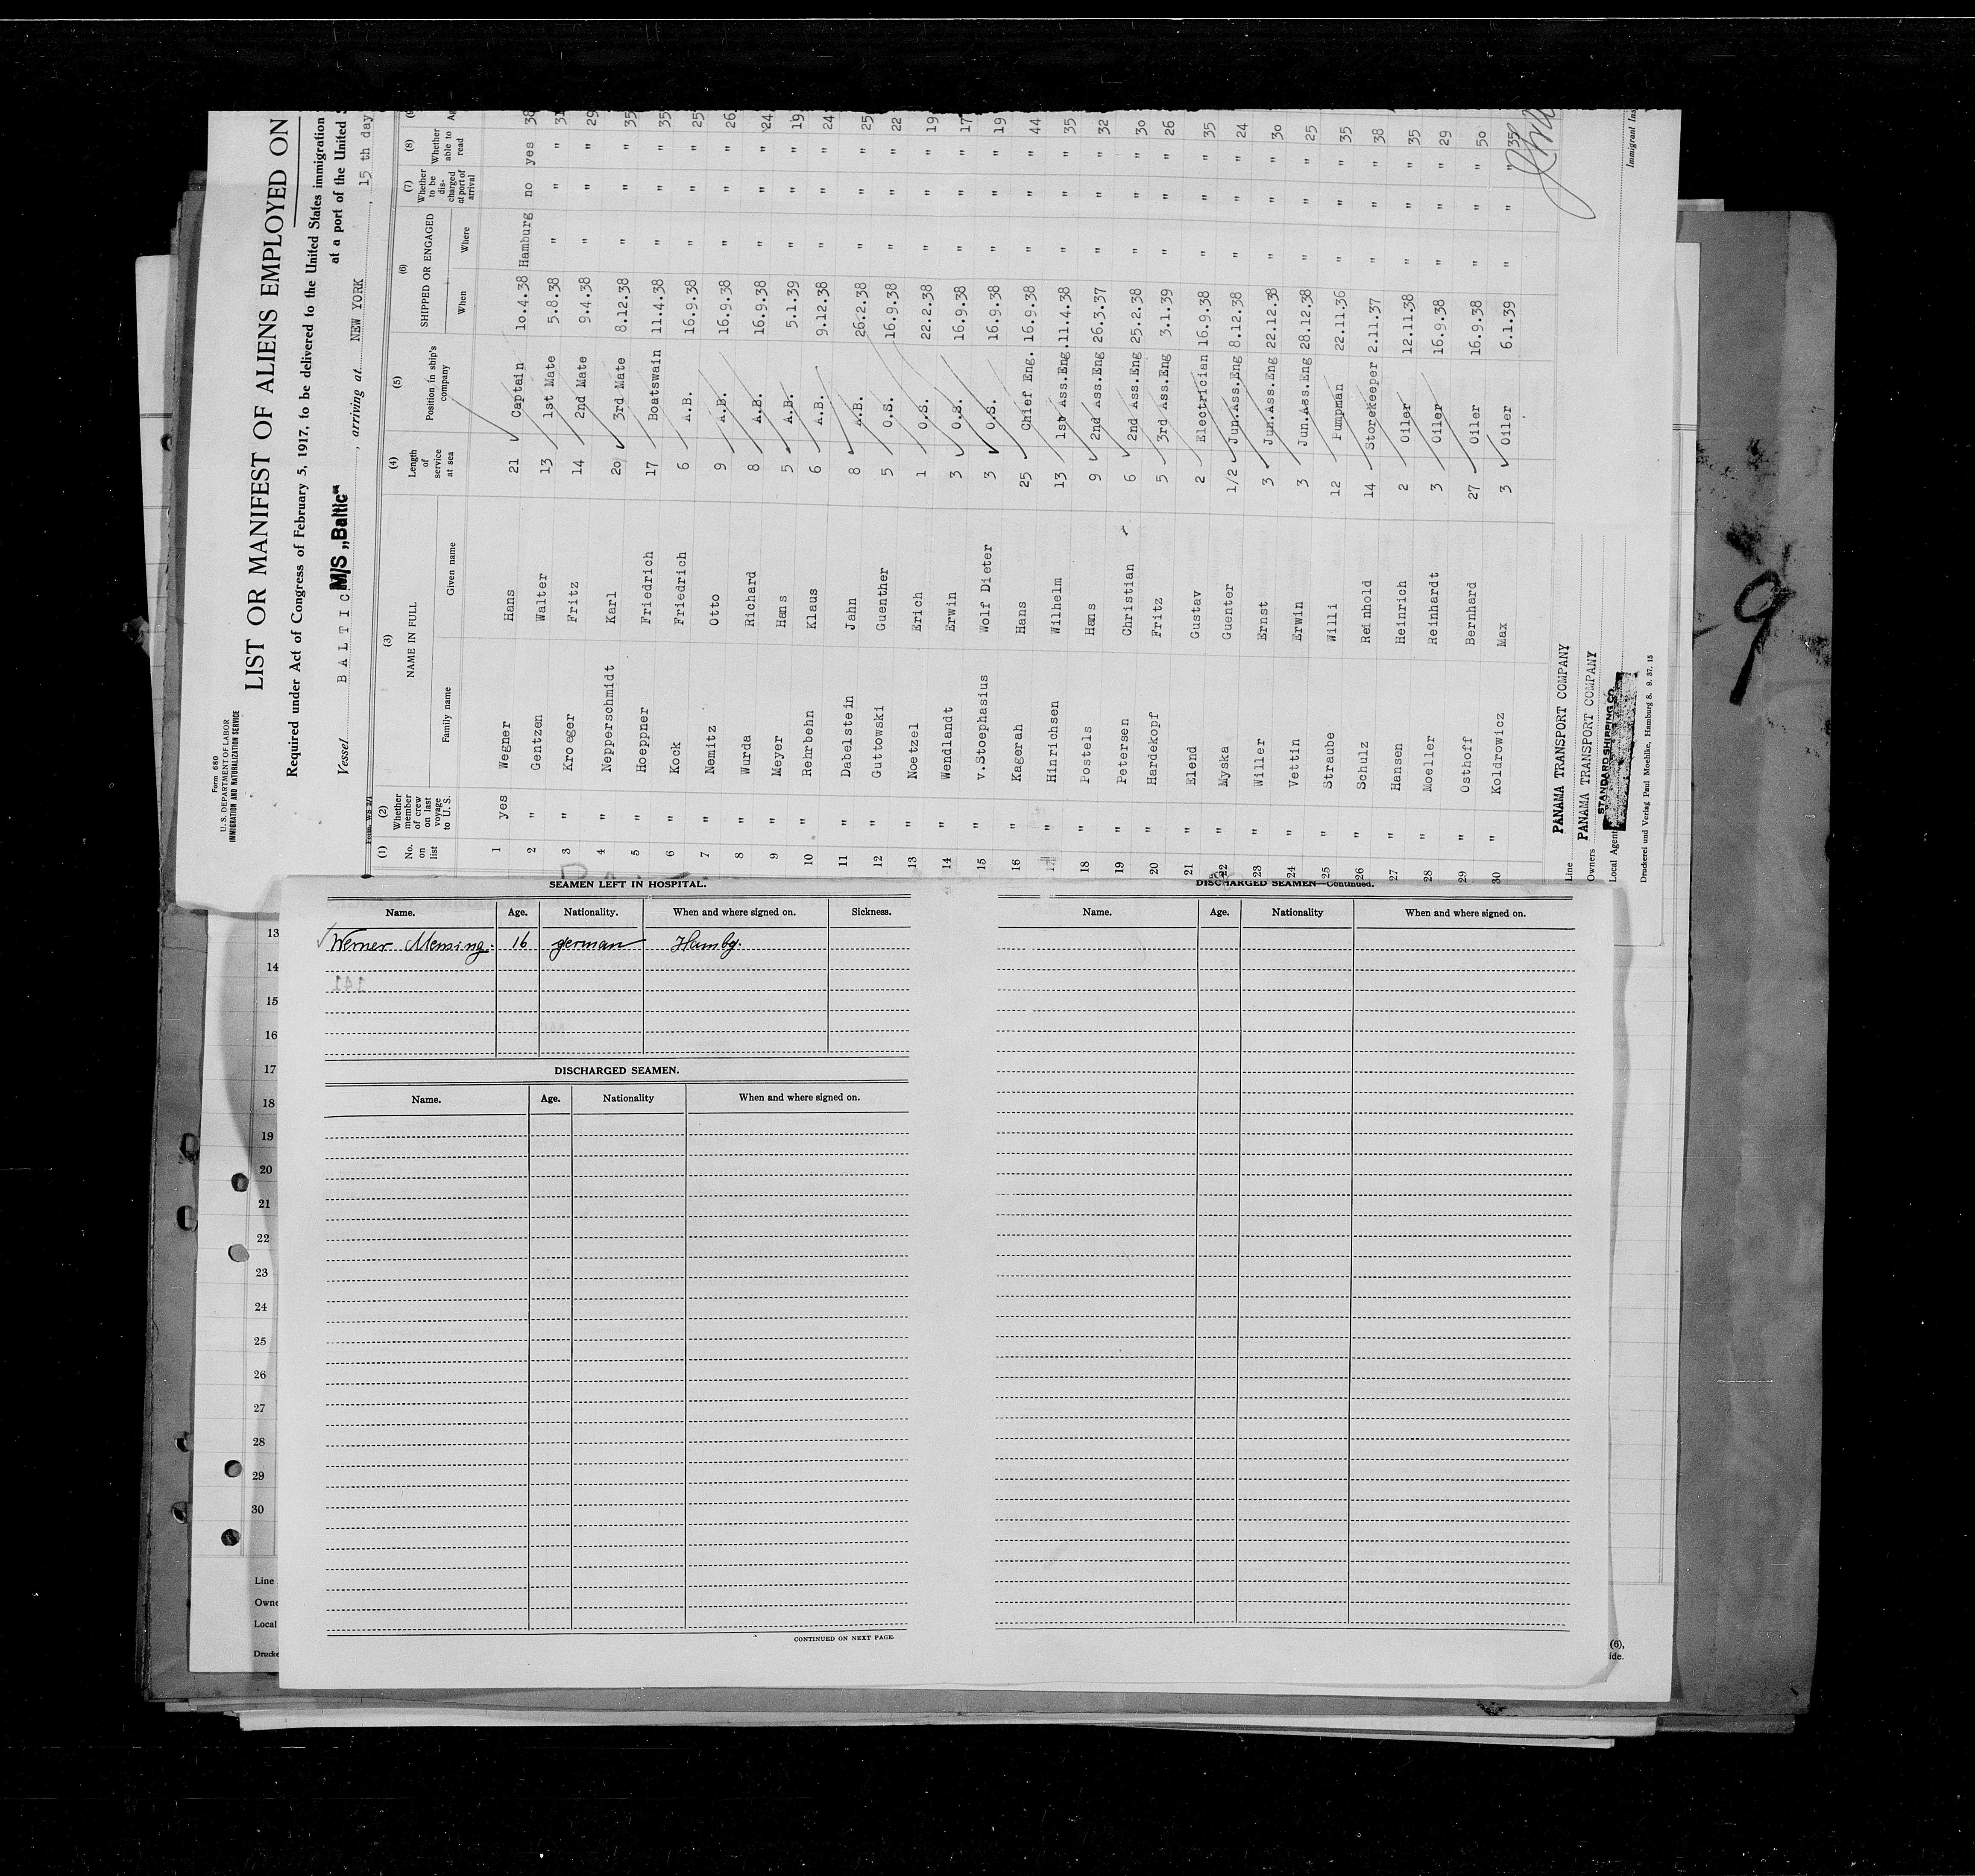 Form 680
U.S. DEPARTMENT OF LABOR
IMMIGRATION AND NATURALIZATION SERVICE
LIST OR MANIFEST OF ALIENS EMPLOYED ON
Required under Act of Congress of February 5, 1917, to be delivered to the United States immigration
at a port of the United S
Vessel BALTIC M/S „Baltic“, arriving at NEW YORK, 15 th day
(1) (2) (3) (4) (5) (6) (7) (8)
No. on list Whether member of crew on last voyage to U. S. NAME IN FULL Length of service at sea Position in ship's company SHIPPED OR ENGAGED Whether to be discharged at port of arrival Whether able to read
Family name Given name When Where
1 yes Wegner Hans 21 Captain 10.4.38 Hamburg no yes 38
2 " Gentzen Walter 13 1st Mate 5.8.38 " " " 31
3 " Kroeger Fritz 14 2nd Mate 9.4.38 " " " 29
4 " Nepperschmidt Karl 20 3rd Mate 8.12.38 " " " 35
5 " Hoeppner Friedrich 17 Boatswain 11.4.38 " " " 35
6 " Kock Friedrich 6 A.B. 16.9.38 " " " 25
7 " Nemitz Otto 9 A.B. 16.9.38 " " " 26
8 " Wurda Richard 8 A.B. 16.9.38 " " " 24
9 " Meyer Hans 5 A.B. 5.1.39 " " " 19
10 " Rehrbehn Klaus 6 A.B. 9.12.38 " " " 24
11 " Dabelstein Jahn 8 A.B. 26.2.38 " " " 25
12 " Guttowski Guenther 5 O.S. 16.9.38 " " " 22
13 " Noetzel Erich 1 O.S. 22.2.38 " " " 19
14 " Wendlandt Erwin 3 O.S. 16.9.38 " " " 17
15 " v.Stoephasius Wolf Dieter 3 O.S. 16.9.38 " " " 19
16 " Kagerah Hans 25 Chief Eng. 16.9.38 " " " 44
17 " Hinrichsen Wilhelm 13 1st Ass.Eng. 11.4.38 " " " 35
18 " Postels Hans 9 2nd Ass.Eng 26.3.37 " " " 32
19 " Petersen Christian 6 2nd Ass.Eng 25.2.38 " " " 30
20 " Hardekopf Fritz 5 3rd Ass.Eng 3.1.39 " " " 26
21 " Elend Gustav 2 Electrician 16.9.38 " " " 35
22 " Myska Guenter 1/2 Jun.Ass.Eng 8.12.38 " " " 24
23 " Willer Ernst 3 Jun.Ass.Eng 22.12.38 " " " 30
24 " Vettin Erwin 3 Jun.Ass.Eng 28.12.38 " " " 25
25 " Straube Willi 12 Pumpman 22.11.36 " " " 35
26 " Schulz Reinhold 14 Storekeeper 2.11.37 " " " 38
27 " Hansen Heinrich 2 Oiler 12.11.38 " " " 35
28 " Moeller Reinhardt 3 Oiler 16.9.38 " " " 29
29 " Osthoff Bernhard 27 Oiler 16.9.38 " " " 50
30 " Koldrowicz Max 3 Oiler 6.1.39 " " " 35
Line PANAMA TRANSPORT COMPANY
Owners PANAMA TRANSPORT COMPANY
Local Agents STANDARD SHIPPING CO.
Immigrant Ins
Druckerei und Verlag Paul Moehlke, Hamburg 8. 9. 37. 15
9
SEAMEN LEFT IN HOSPITAL.
Name. Age. Nationality. When and where signed on. Sickness.
Werner Mensing. 16 german Hambg.
141
DISCHARGED SEAMEN.
Name. Age. Nationality When and where signed on.
CONTINUED ON NEXT PAGE.
DISCHARGED SEAMEN—Continued.
Name. Age. Nationality When and where signed on.
13
14
15
16
17
18
19
20
21
22
23
24
25
26
27
28
29
30
Line
Owne
Local
Drucke
(6),
ide.